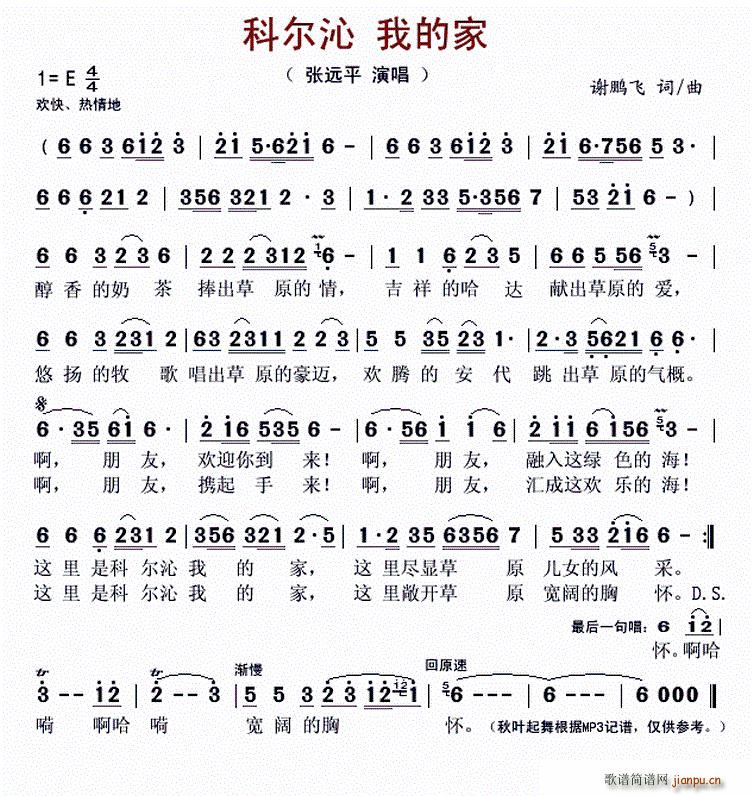 科尔沁 我的家
1=E 4/4 （ 张远平 演唱 ） 谢鹏飞 词/曲
欢快、热情地
( 6 6 3 6i2 3 | 2i 5·62i 6 - | 6 6 3 6i2 3 | 2i 6·756 5 3· |
6 6 6 2 1 2 | 356 321 2 · 3 | 1 · 2 33 5·356 7 | 53 2i 6 - ) |
6 6 3 2 3 6 | 2 2 2 312 1 6 - | 1 1 6 2 3 5 | 6 6 5 56 5 3 - |
醇 香 的 奶 茶 捧出草 原的 情， 吉 祥 的哈 达 献出草原的 爱，
6 6 3 231 2 | 63 2311 2 2 3 | 5 5 35 23 1· | 2·3 5621 6 6· |
悠 扬 的牧 歌 唱出草 原的豪迈， 欢 腾 的 安 代 跳 出 草 原的气概。
6 · 35 6i 6 · | 2 i6 535 6 - | 6 · 56 i i 6 | 2 ii 6 i56 5 3 - |
啊， 朋 友， 欢迎你到 来！ 啊， 朋 友， 融入这绿 色的 海！
啊， 朋 友， 携起 手 来！ 啊， 朋 友， 汇成这欢 乐的 海！
6 6 6 231 2 | 356 321 2 · 5 | 1·2 35 6356 7 | 5 33 2i6 6 - :‖
这 里 是科 尔沁 我 的 家， 这 里尽显草 原 儿女的风 采。
这 里 是科 尔沁 我 的 家， 这 里敞开草 原 宽阔的胸 怀。D.S.
最后一句唱： 6 i2
怀。啊哈
渐慢 回原速
3 - - i2 | 2 - - 3 | 5 5 3 2 3 i2 i2 i | 5 6 - - - | 6 - - - | 6 0 0 0 ‖
嗬 啊哈 嗬 宽 阔 的胸 怀。（秋叶起舞根据MP3记谱，仅供参考。）
歌谱简谱网
jianpu.cn